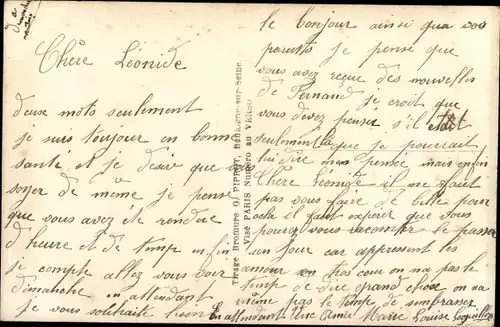 Chère Léonide
deux mots seulement
je suis toujour en bonne
santé et je désire que vous
soyer de même je pense
que vous avez été rendue
d'heure et de temp enfin
je compte allez vous voir
dimanche en attendant
je vous souhaite bien
le bonjour ainsi qua vos
parents je pense que
vous avez reçue des nouvelles
de Fernand je croit que
vous devez penser s'il était
seulement là que je pourrait
lui dire mes pensée mais enfin
Chère Léonide il ne faut
pas vous faire de bille pour
cela il faut espérer que vous
pourez vous raconter le passer
un jour car appressent les
amour en on na pas le
temp de dire grand chose on na
même pas le temp de sembrasser
En attendant Une Amie Marie Louise
Tirage Bromure G. PIPROT, Boulogne-sur-Seine.
Visé PARIS Numéro au VERSO